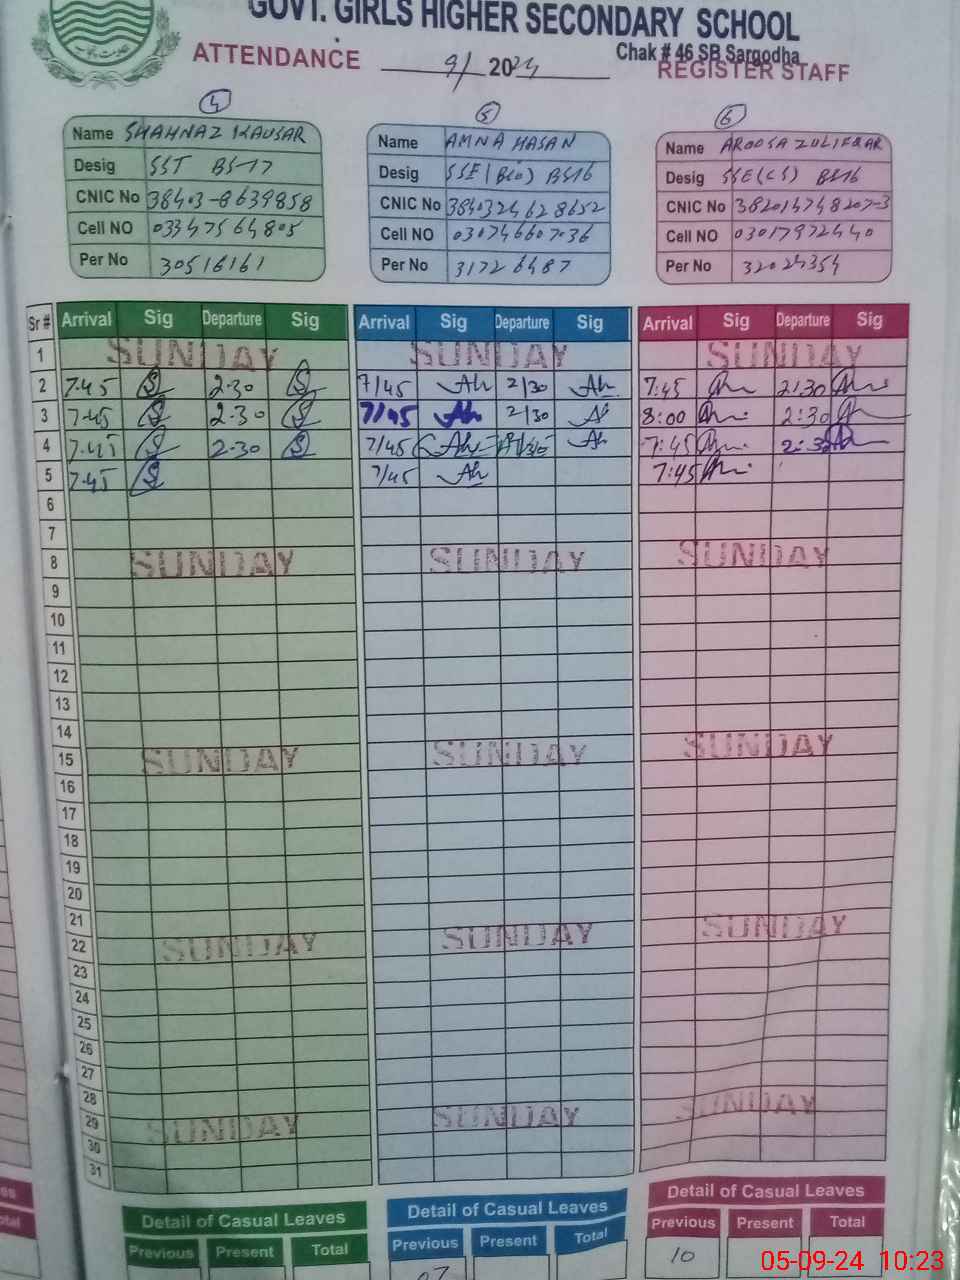 GOVT. GIRLS HIGHER SECONDARY SCHOOL
Chak # 46 SB Sargodha
ATTENDANCE 9/ 2024 REGISTER STAFF
4
Name SHAHNAZ KAUSAR
Desig SST BS-17
CNIC No 38403-8639858
Cell NO 03347564805
Per No 30516161
5
Name AMNA HASAN
Desig SSE (Bio) BS16
CNIC No 3840324628652
Cell NO 030746607036
Per No 31726487
6
Name AROOSA ZULIFQAR
Desig SSE(CS) BS16
CNIC No 382014748207-3
Cell NO 03017972440
Per No 32024354
Sr # Arrival Sig Departure Sig Arrival Sig Departure Sig Arrival Sig Departure Sig
1 SUNDAY SUNDAY SUNDAY
2 7.45 2.30 7/45 2/30 7:45 2:30
3 7.45 2.30 7/45 2/30 8:00 2:30
4 7.45 2.30 7/45 7:45 2:30
5 7.45 7/45 7:45
6
7
8 SUNDAY SUNDAY SUNDAY
9
10
11
12
13
14
15 SUNDAY SUNDAY SUNDAY
16
17
18
19
20
21
22 SUNDAY SUNDAY SUNDAY
23
24
25
26
27
28
29 SUNDAY SUNDAY SUNDAY
30
31
Detail of Casual Leaves Detail of Casual Leaves Detail of Casual Leaves
Previous Present Total Previous Present Total Previous Present Total
07 10
05-09-24 10:23